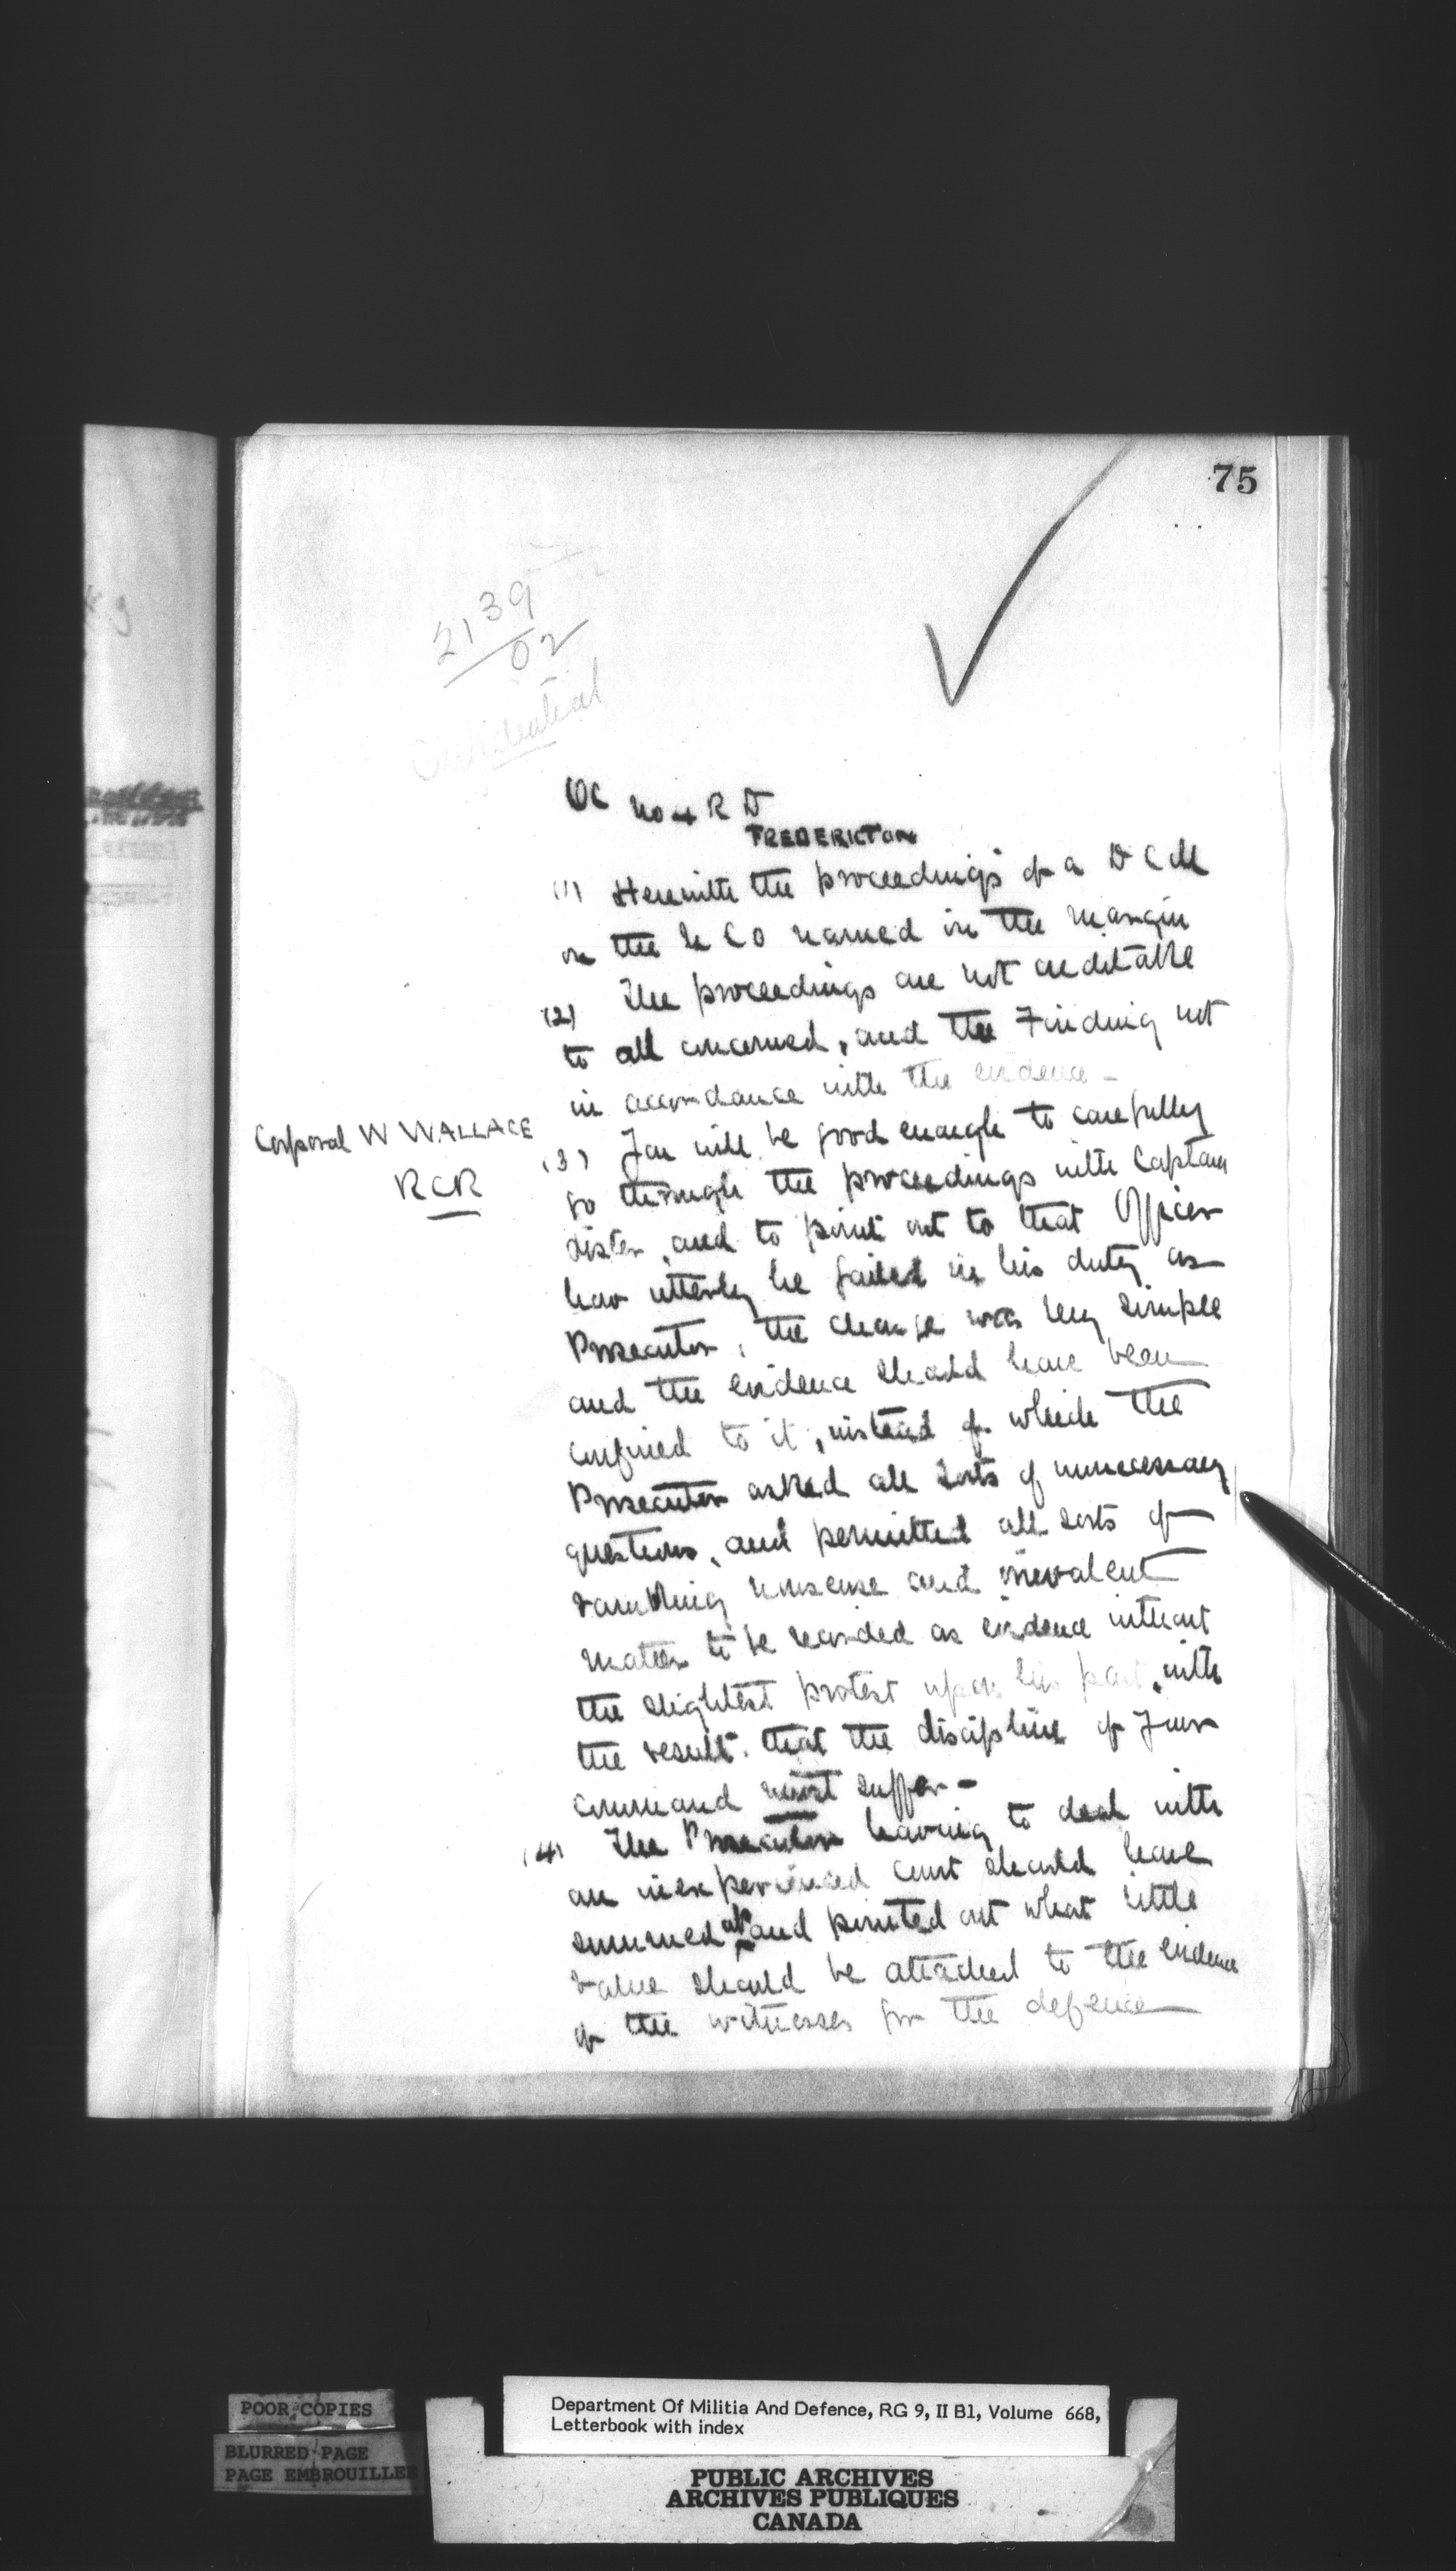 75
2139
02
Confidential
OC No 4 R D
FREDERICTON
(1) Herewith the proceedings of a D C M
on the N C O named in the margin
(2) The proceedings are not creditable
to all concerned, and the Finding not
in accordance with the evidence -
Corporal W WALLACE
RCR
(3) You will be good enough to carefully
go through the proceedings with Captain
and to point out to that Officer
how utterly he failed in his duty as
Prosecutor, the charge was very simple
and the evidence should have been
confined to it, instead of which the
Prosecutor asked all sorts of unnecessary
questions, and permitted all sorts of
rambling nonsense and irrevalent
matter to be recorded as evidence without
the slightest protest upon his part, with
the result that the discipline of your
command must suffer -
(4) The Prosecutor having to deal with
an inexperienced Court should have
summed up and pointed out what little
value should be attached to the evidence
of the witnesses for the defence
POOR COPIES
BLURRED PAGE
PAGE EMBROUILLEE
Department Of Militia And Defence, RG 9, II B1, Volume 668,
Letterbook with index
PUBLIC ARCHIVES
ARCHIVES PUBLIQUES
CANADA